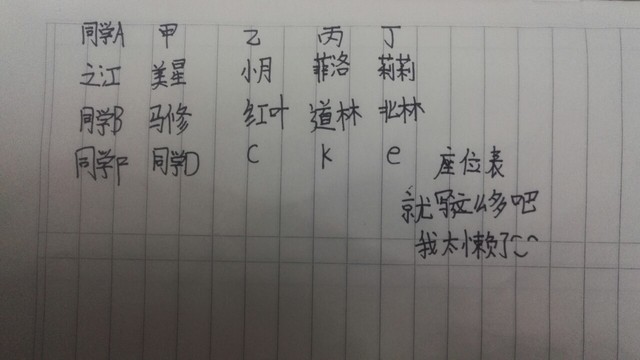 同学A 甲 乙 丙 丁
之江 美星 小月 菲洛 莉莉
同学B 马修 红叶 道林 北林
同学F 同学D C K e 座位表
就写这么多吧
我太懒了